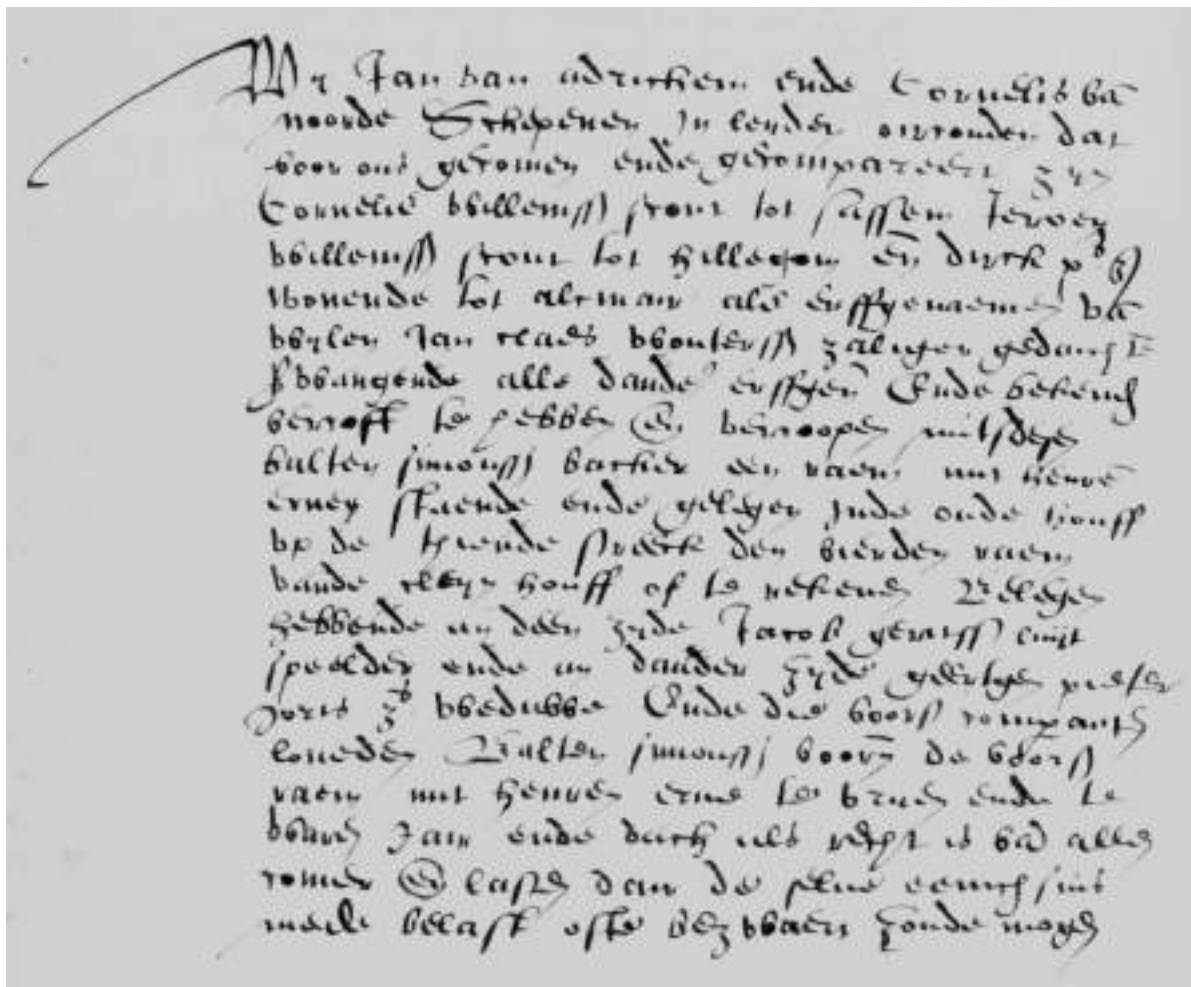 Wy Jan van adrichem ende Cornelis vā
noorde Schepenen In leyden oirconden dat
voor ons gecomen ende gecompareert zyn
Cornelis willemsz stout tot sassem Jeroen
willemsz stout tot hillegom eñ dirck
wonende tot alcmair als erffgenaemen vā
wylen Jan claes woutersz zaliger gedachte
vwangende alle dander erffgen Ende bekende
vercoft te hebben eñ vercoopen mitsdesen
balten symonsz backer een raem mit heure
erven staende ende gelegen Inde oude houff
vp de thiende streeck den vierden raem
vande cleyn houff of te rekenen Belegen
hebbende an deen zyde Jacob gerritsz luyt
speelder ende an dander zyde geertgen pieter
Joris zs weduwe Ende die voors compantē
loueden Balten symonsz voorn de voors
raem mit heuren erue te vryen ende te
waren Jair ende dach als recht is vā allen
comer eñ lasten dair de selue eenichsins
mede belast ofte bezwaert zoude mogen